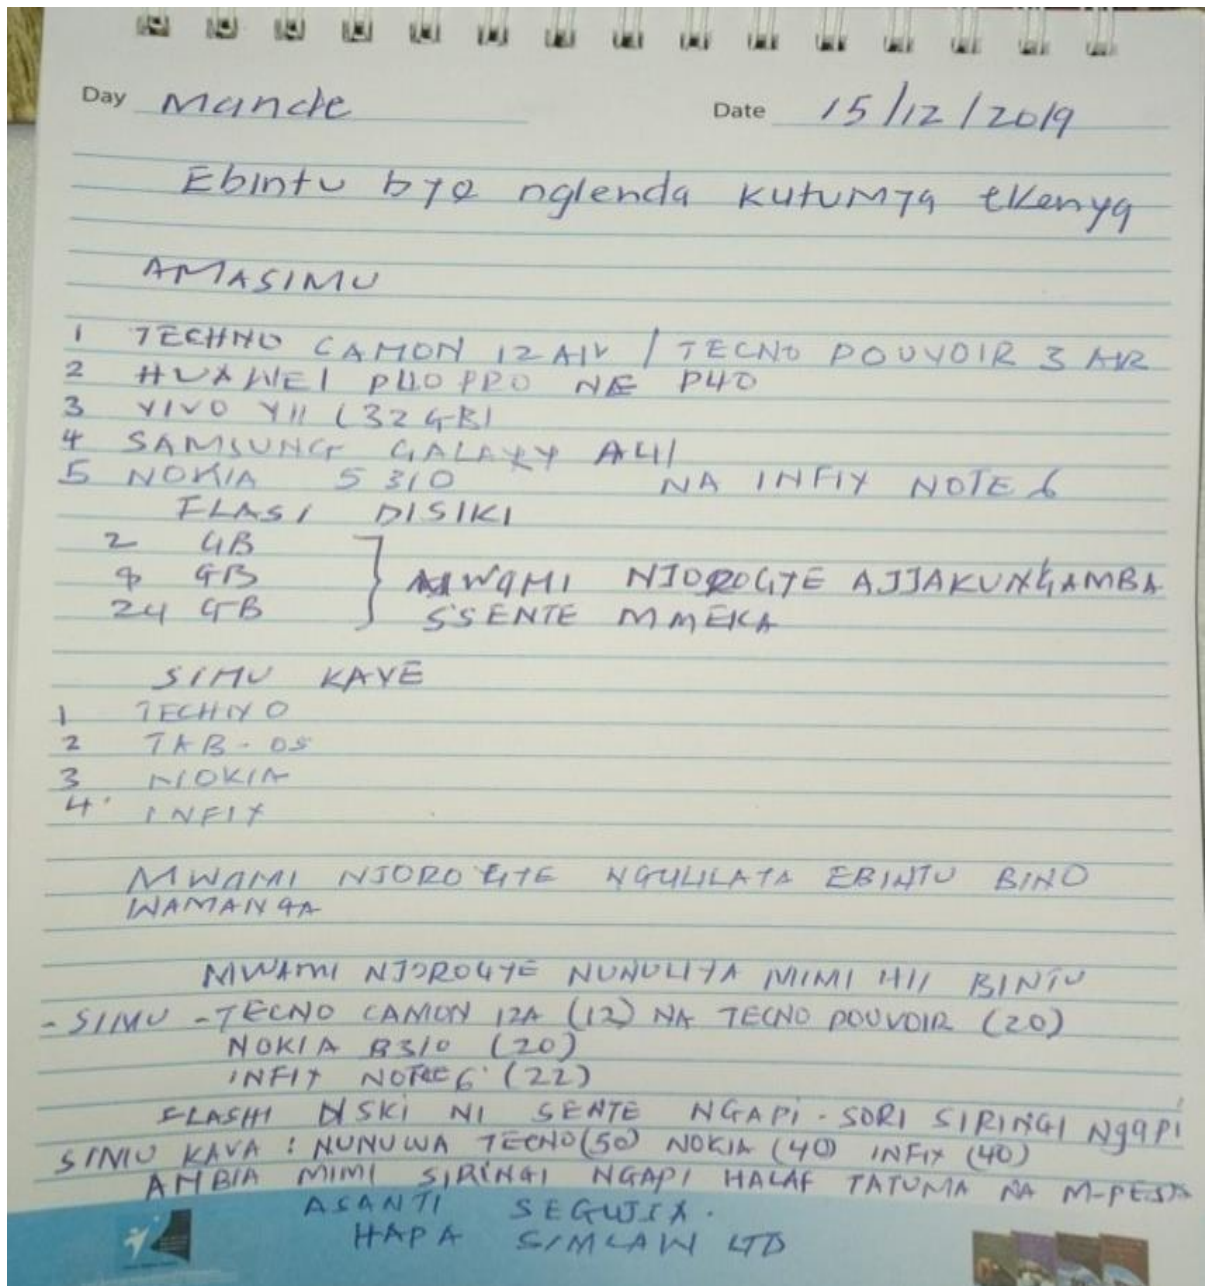 Day Mande Date 15/12/2019
Ebintu bye ngenda kutumya eKenya
AMASIMU
1 TECHNO CAMON 12 AIR / TECNO POUVOIR 3 AIR
2 HUAWEI P40 PRO NE P40
3 VIVO Y11 (32 GB)
4 SAMSUNG GALAXY A41
5 NOKIA 5310 NA INFIX NOTE 6
FLASI DISIKI
2 GB
8 GB
24 GB
MWAMI NJOROGYE AJJAKUNGAMBA
SSENTE MMEKA
SIMU KAVE
1 TECHNO
2 TAB-OS
3 NOKIA
4 INFIX
MWAMI NJOROGYE EBINTU BINO
WAMANGA
MWAMI NJOROGYE NUNULIYA MIMI HII BINTU
- SIMU - TECNO CAMON 12A (12) NA TECNO POUVOIR (20)
NOKIA 5310 (20)
INFIX NOTE 6 (22)
FLASHI DISKI NI SENTE NGAPI - SORI SIRINGI NgAPI
SIMU KAVA : NUNUWA TECNO (50) NOKIA (40) INFIX (40)
AMBIA MIMI SIRINGI NGAPI HALAF TATUMA NA M-PESA
ASANTI
HAPA SIMLAW LTD